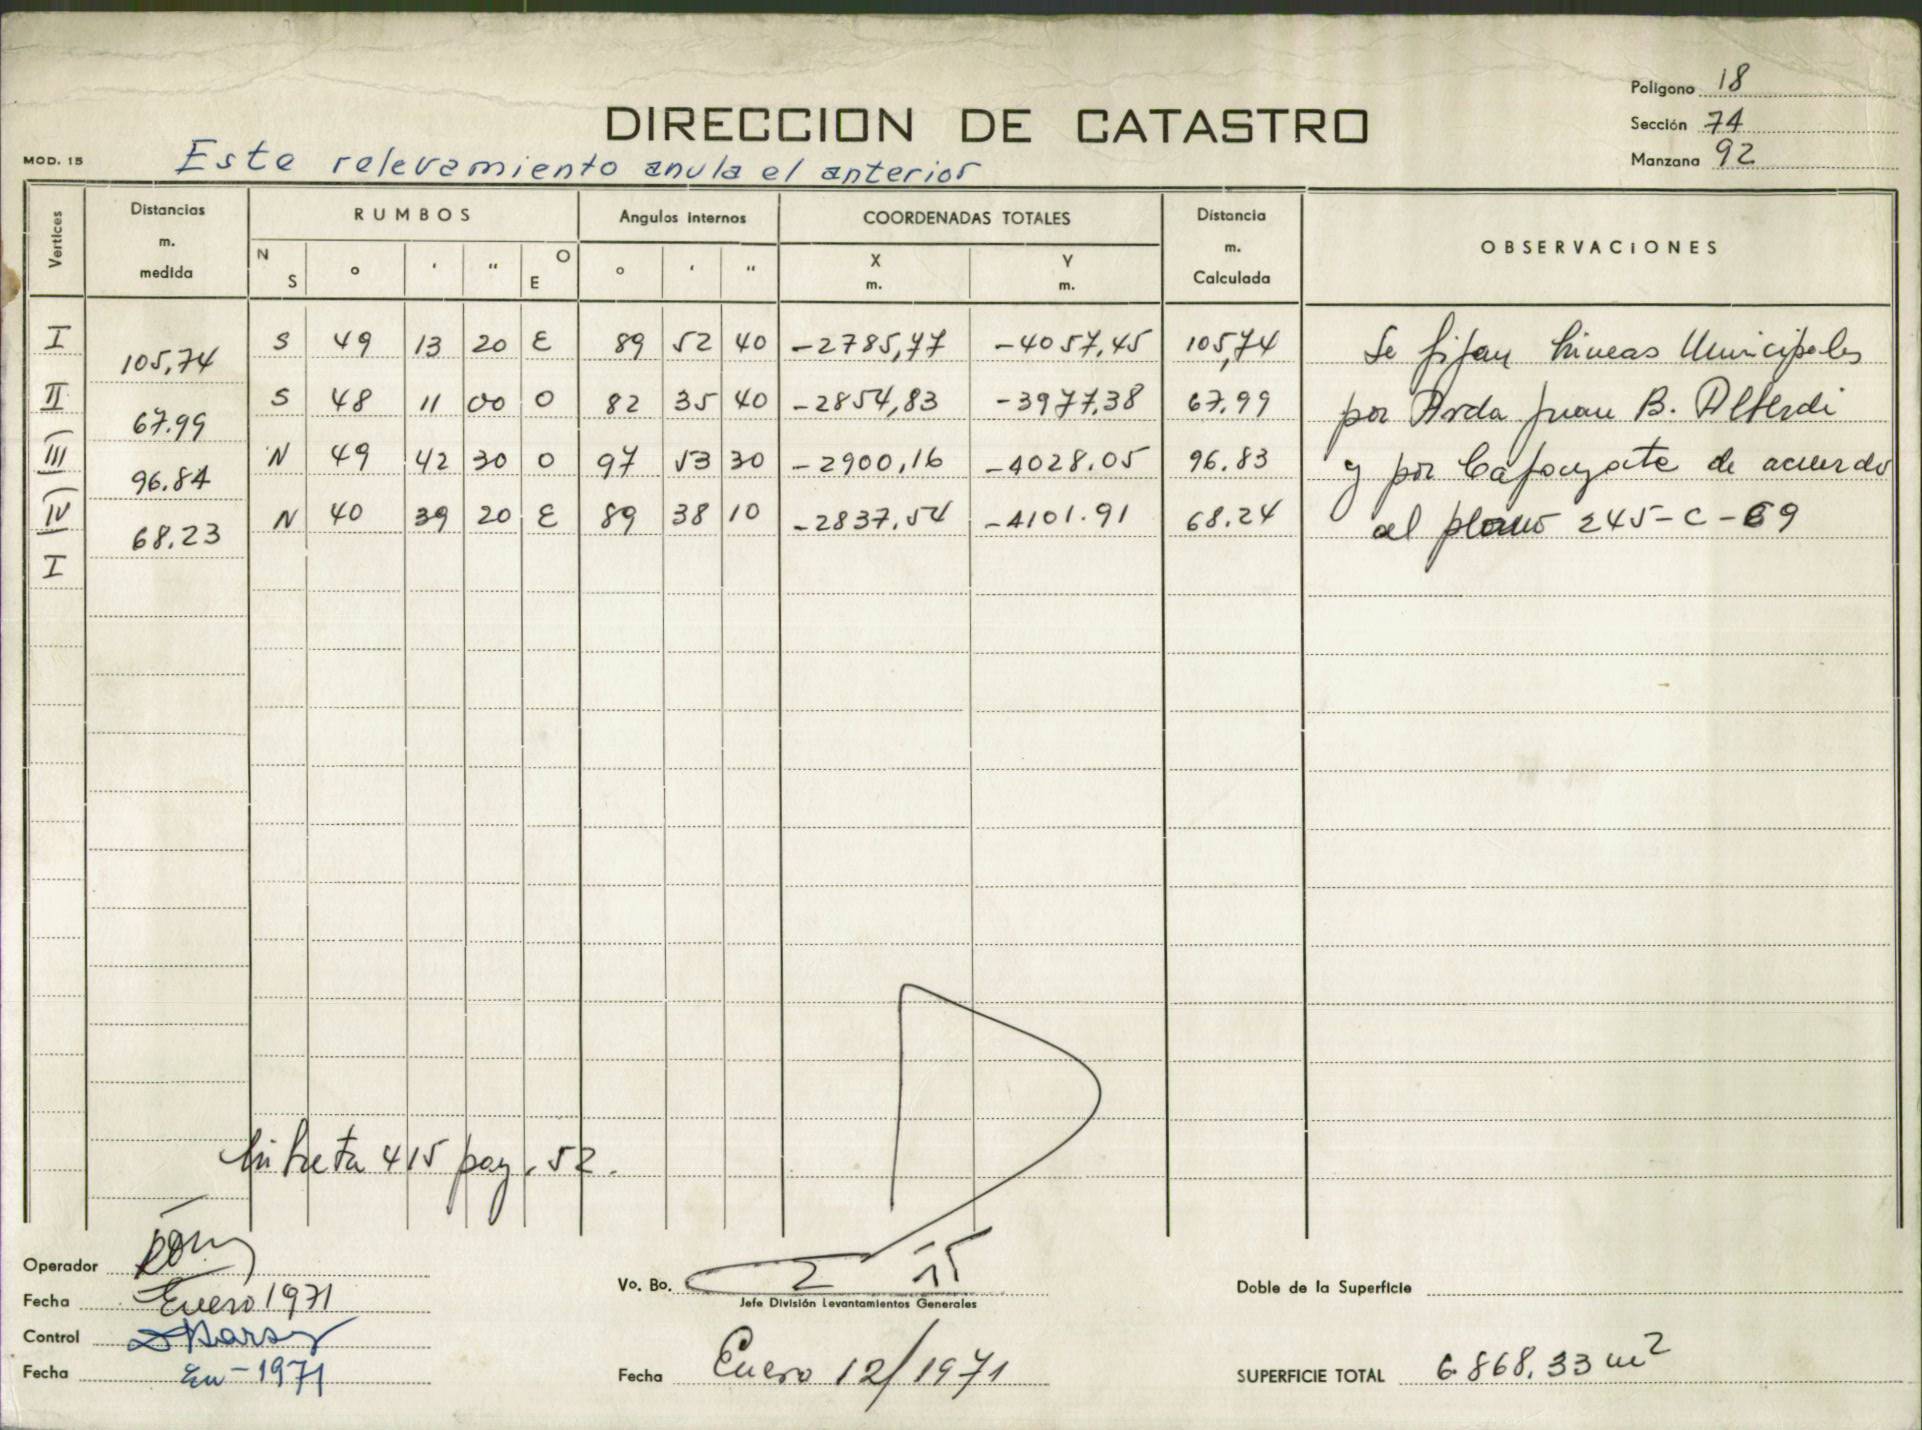 Polígono 18
DIRECCION DE CATASTRO
Sección 74
Manzana 92
MOD. 15
Este relevamiento anula el anterior
Vertices Distancias m. medida RUMBOS Angulos internos COORDENADAS TOTALES Distancia m. Calculada OBSERVACIONES
N S o ' " O E o ' " X m. Y m.
I S 49 13 20 E 89 52 40 -2785,77 -4057,45 105,74 Se fijan Líneas Municipales
105,74
II S 48 11 00 O 82 35 40 -2854,83 -3977,38 67.99 por Avda Juan B. Alberdi
67.99
III N 49 42 30 O 97 53 30 -2900,16 -4028.05 96.83 y por Cafayate de acuerdo
96.84
IV N 40 39 20 E 89 38 10 -2837,54 -4101.91 68.24 al plano 245-C-69
68.23
I
Libreta 415 pag. 52.
Operador
Fecha Enero 1971
Control
Fecha En-1971
Vo. Bo.
Jefe División Levantamientos Generales
Fecha Enero 12/1971
Doble de la Superficie
SUPERFICIE TOTAL 6.868,33 m2